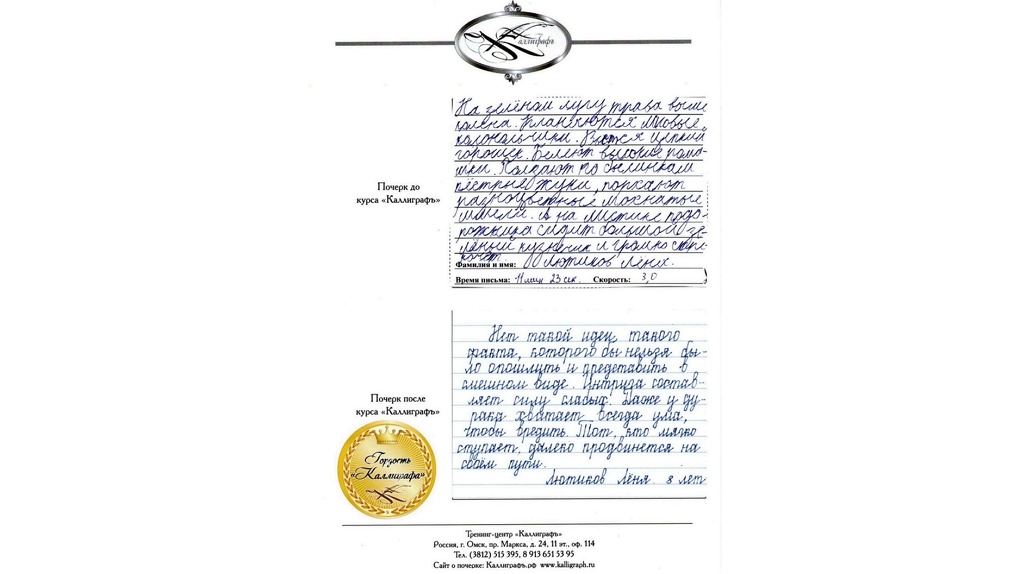 Каллиграфъ
На зелёном лугу трава выше
колена. Кланяются лиловые
колокольчики. Вьётся цепкий
горошек. Белеют высокие рома-
шки. Ползают по былинкам
пёстрые жуки, порхают
разноцветные мохнатые
шмели. А на листике подо-
рожника сидит большой зе-
лёный кузнечик и громко стре-
кочет.
Почерк до
курса «Каллиграфъ»
Фамилия и имя: Лютиков Лёня.
Время письма: 11 мин 23 сек. Скорость: 3,0
Нет такой идеи, такого
факта, которого бы нельзя бы-
ло опошлить и представить в
смешном виде. Интрига состав-
ляет силу слабых. Даже у ду-
рака хватает всегда ума,
чтобы вредить. Тот, кто мягко
ступает, далеко продвинется на
своём пути.
Лютиков Лёня 8 лет
Почерк после
курса «Каллиграфъ»
Гордость
«Каллиграфа»
Тренинг-центр «Каллиграфъ»
Россия, г. Омск, пр. Маркса, д. 24, 11 эт., оф. 114
Тел. (3812) 515 395, 8 913 651 53 95
Сайт о почерке: Каллиграфъ.рф www.kalligraph.ru